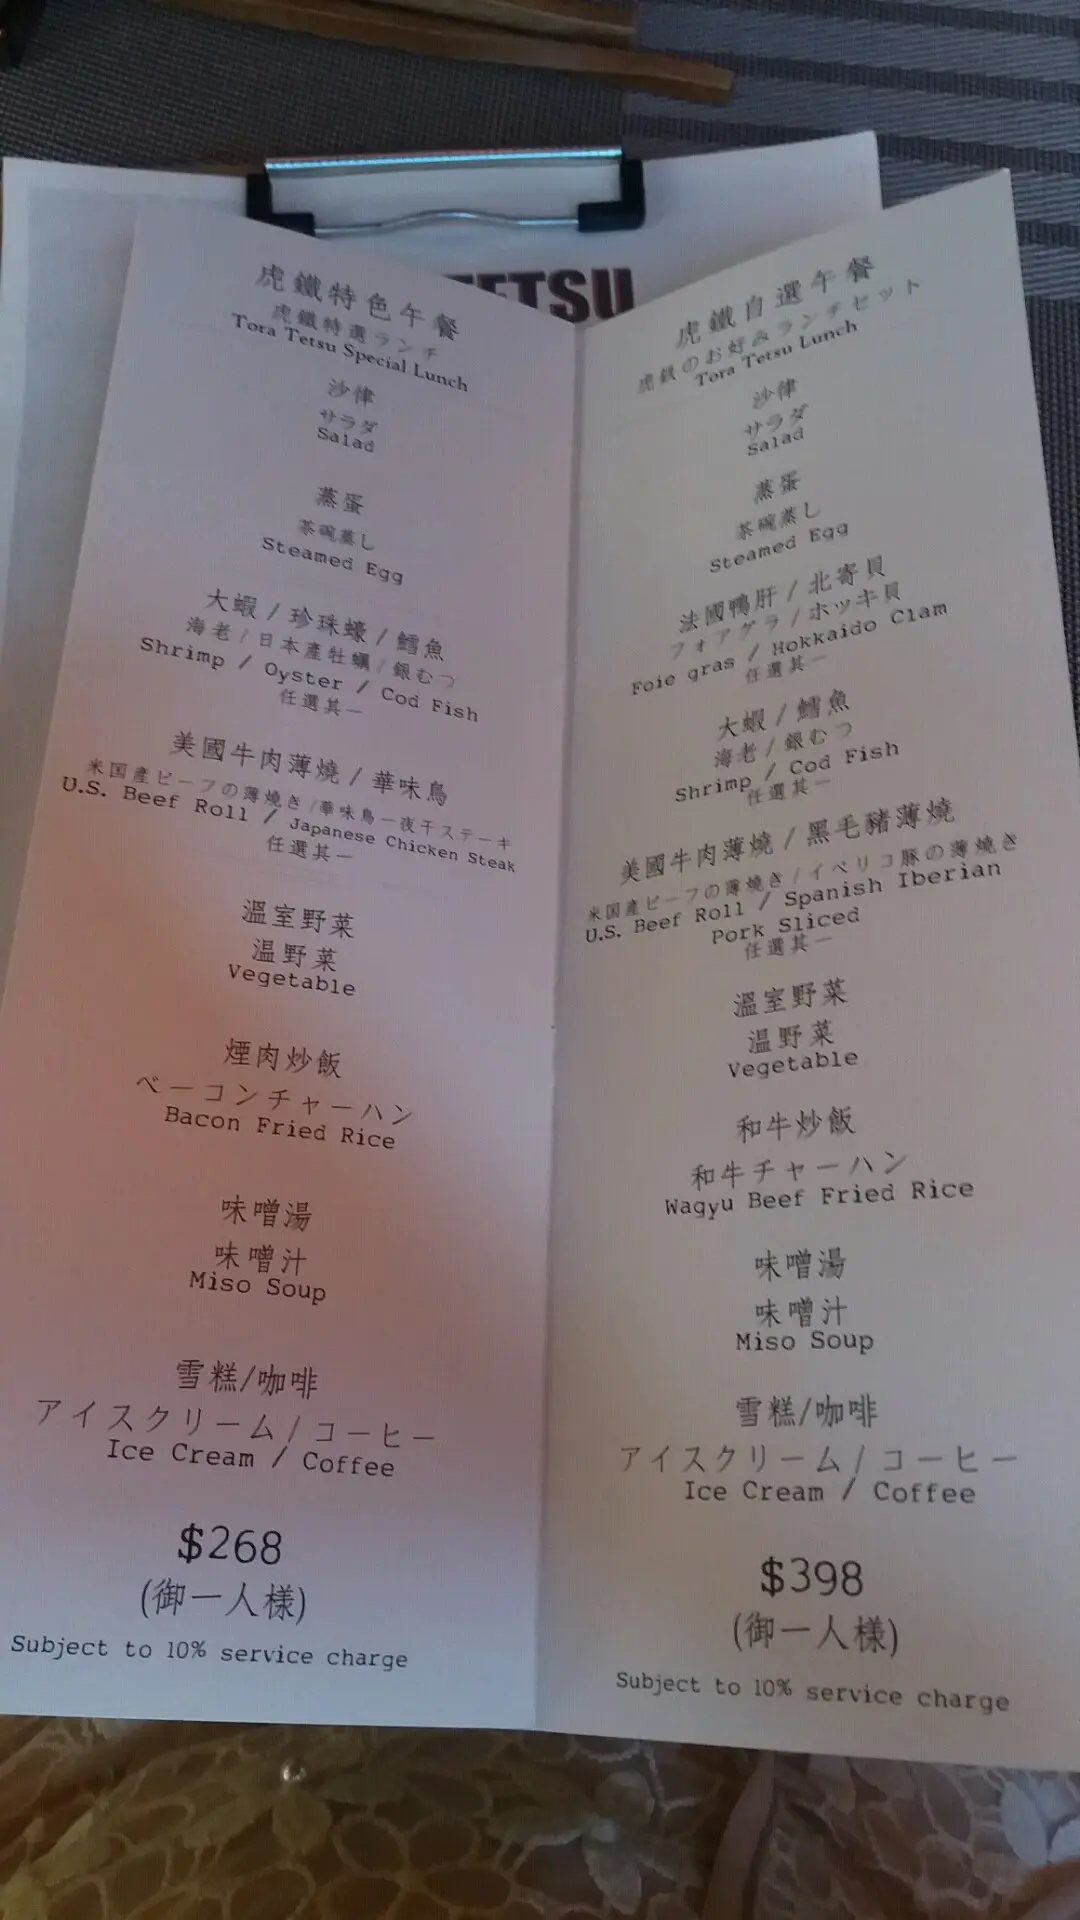 TETSU
虎鐵特色午餐
虎鐵特選ランチ
Tora Tetsu Special Lunch
沙律
サラダ
Salad
蒸蛋
茶碗蒸し
Steamed Egg
大蝦 / 珍珠蠔 / 鱈魚
海老 / 日本產牡蠣 / 銀むつ
Shrimp / Oyster / Cod Fish
任選其一
美國牛肉薄燒 / 華味鳥
米国産ビーフの薄焼き / 華味鳥一夜干ステーキ
U.S. Beef Roll / Japanese Chicken Steak
任選其一
溫室野菜
温野菜
Vegetable
煙肉炒飯
ベーコンチャーハン
Bacon Fried Rice
味噌湯
味噌汁
Miso Soup
雪糕/咖啡
アイスクリーム/コーヒー
Ice Cream / Coffee
$268
(御一人様)
Subject to 10% service charge
虎鐵自選午餐
虎鉄のお好みランチセット
Tora Tetsu Lunch
沙律
サラダ
Salad
蒸蛋
茶碗蒸し
Steamed Egg
法國鴨肝 / 北寄貝
フォアグラ / ホッキ貝
Foie gras / Hokkaido Clam
任選其一
大蝦 / 鱈魚
海老 / 銀むつ
Shrimp / Cod Fish
任選其一
美國牛肉薄燒 / 黑毛豬薄燒
米国産ビーフの薄焼き / イベリコ豚の薄焼き
U.S. Beef Roll / Spanish Iberian
Pork Sliced
任選其一
溫室野菜
温野菜
Vegetable
和牛炒飯
和牛チャーハン
Wagyu Beef Fried Rice
味噌湯
味噌汁
Miso Soup
雪糕/咖啡
アイスクリーム/コーヒー
Ice Cream / Coffee
$398
(御一人様)
Subject to 10% service charge